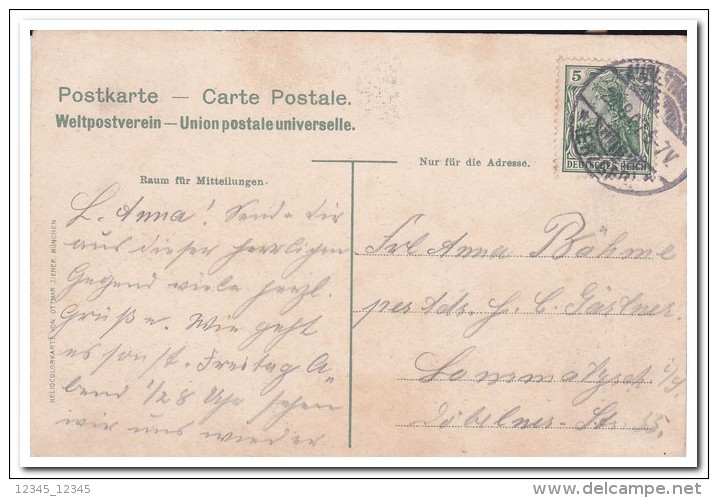 Postkarte — Carte Postale.
Weltpostverein — Union postale universelle.
Nur für die Adresse.
Raum für Mitteilungen.
5
DEUTSCHES REICH
L. Anna! Sende Dir
aus dieser herrlichen
Gegend viele herzl.
Grüße. Wie geht
es sonst. Freitag A„
bend 1/2 8 Uhr sehen
wir uns wieder
Frl Anna Böhme
per Ads. H. C. Gärtner.
Lommatzsch i/S.
Döbelner-Str. 35.
HELIOCOLORKARTE VON OTTMAR ZIEHER, MÜNCHEN
12345_12345
delcampe.net